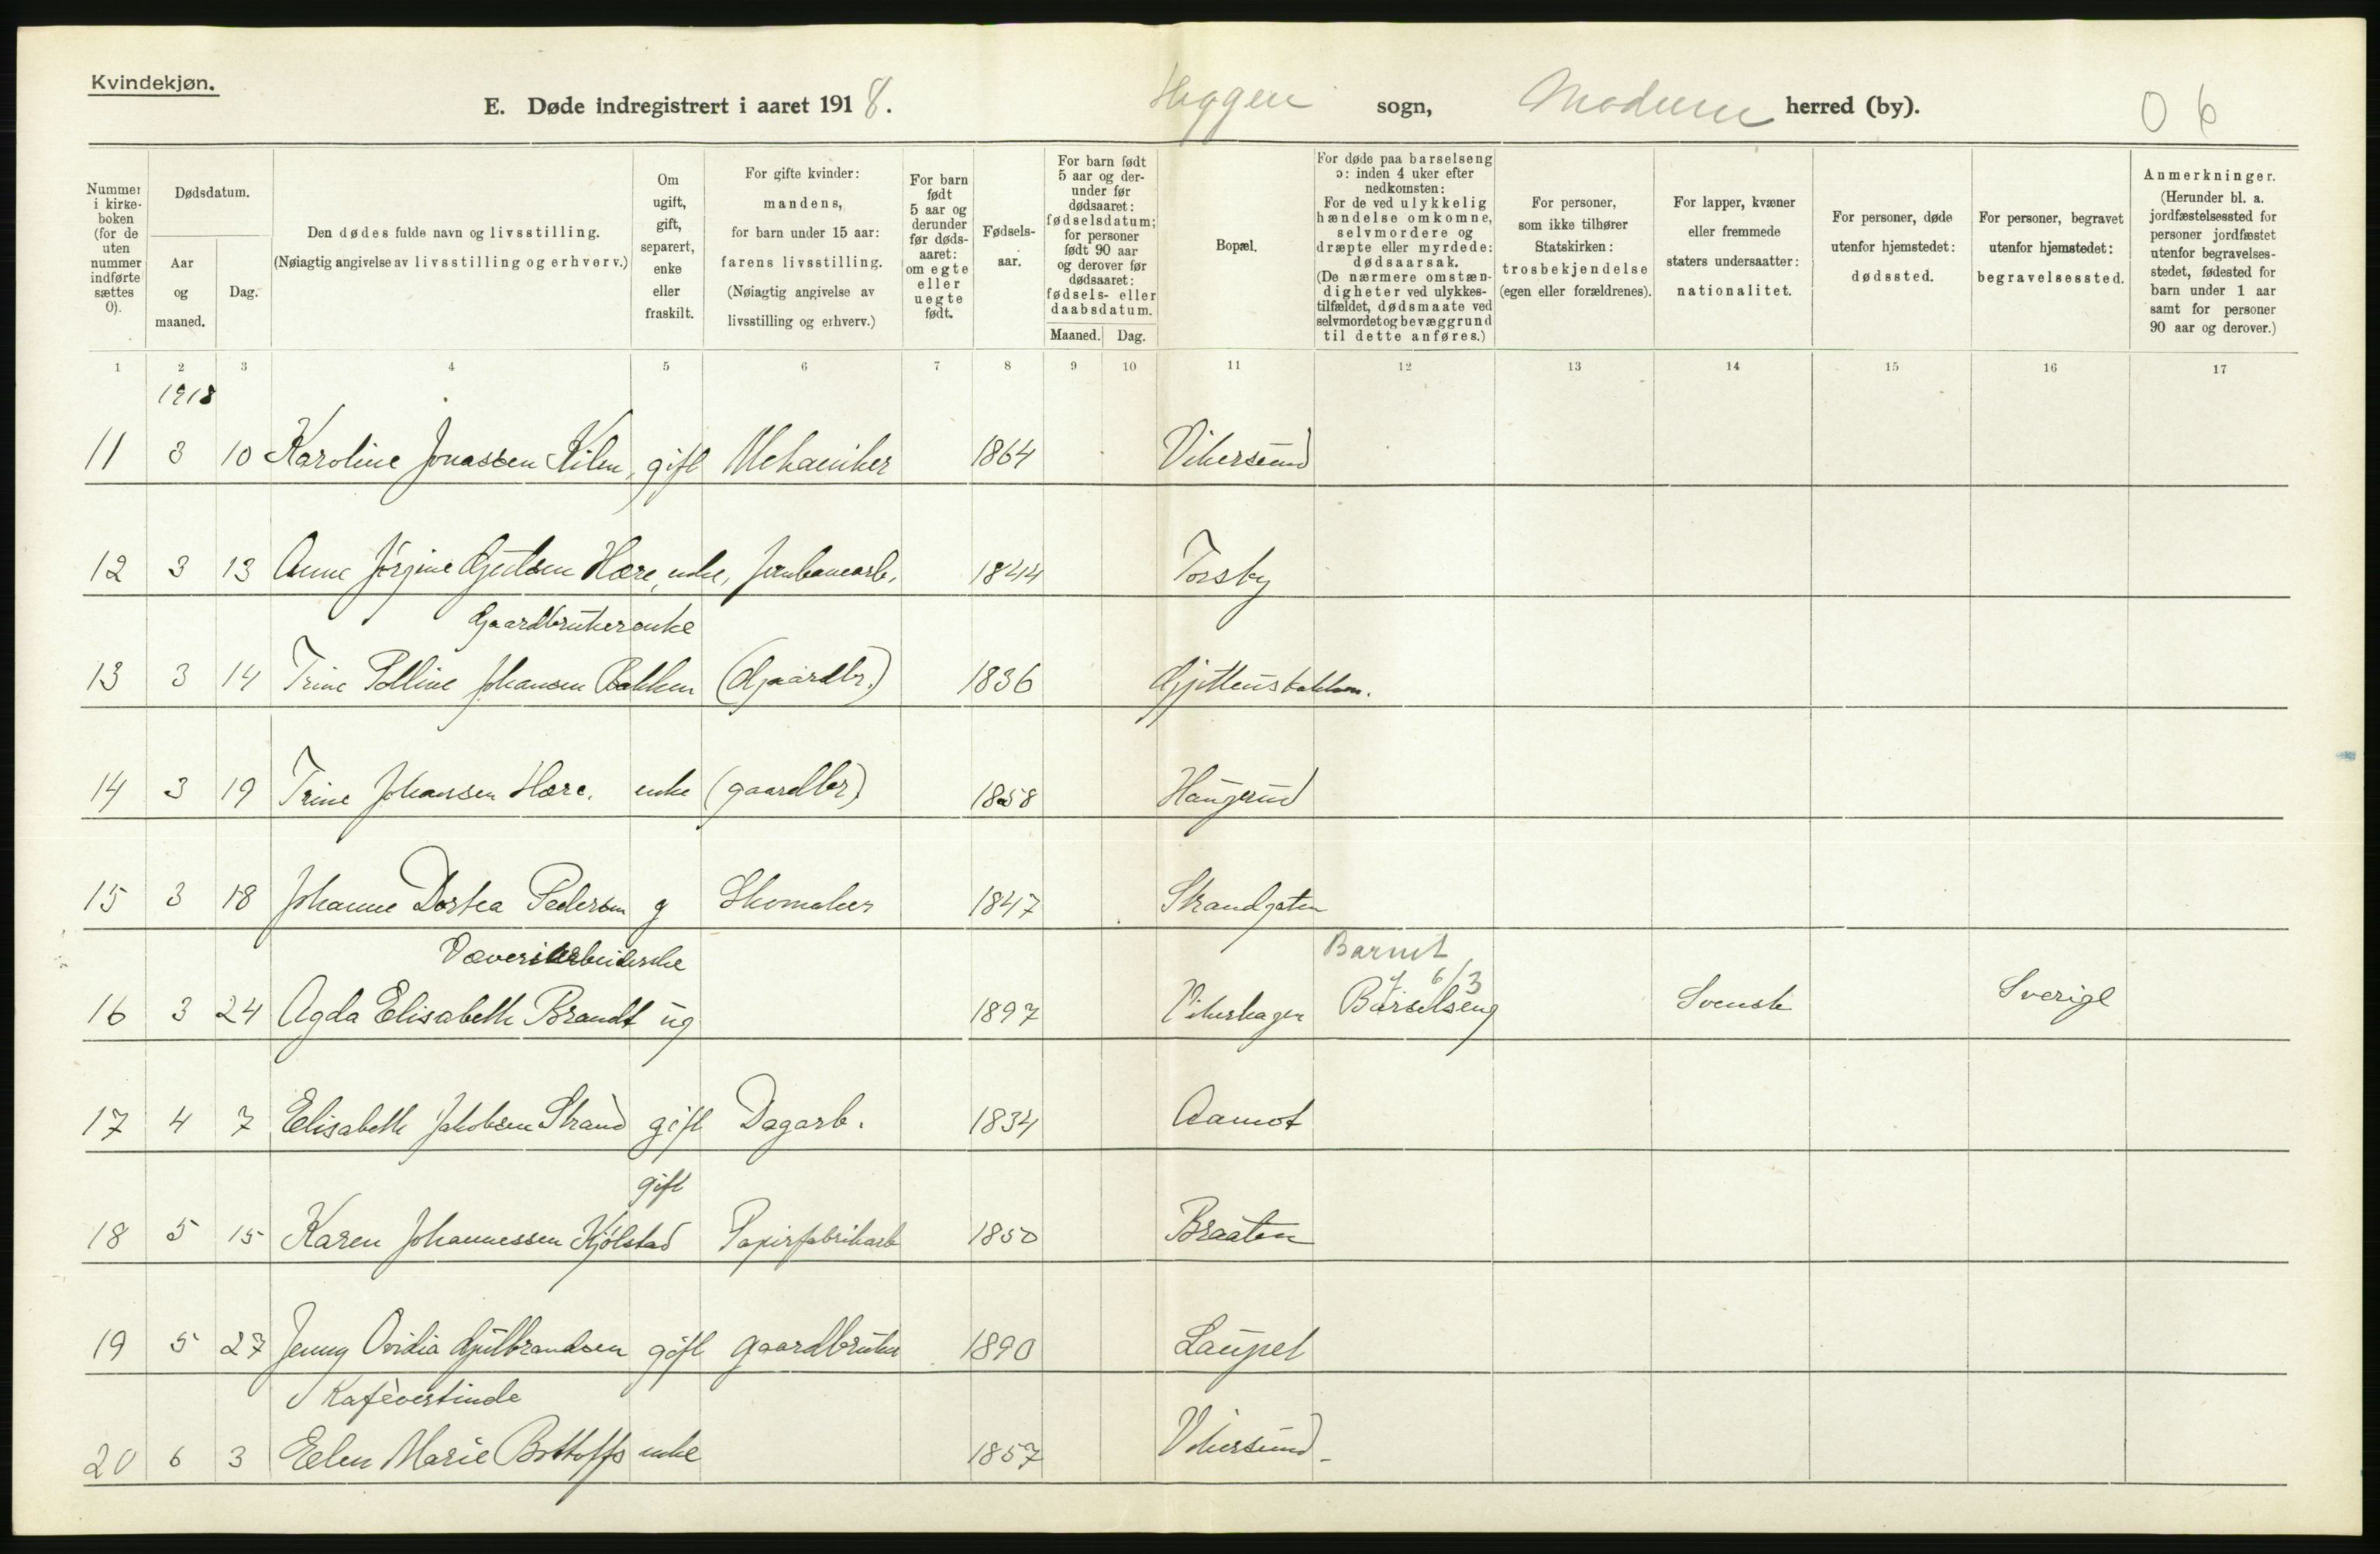 Kvindekjøn.
E. Døde indregistrert i aaret 1918. Heggen sogn, Modum herred (by). 06
Nummer i kirke-boken (for de uten nummer indførte sættes 0).
Dødsdatum.
Aar og maaned.
Dag.
Den dødes fulde navn og livsstilling.
(Nøiagtig angivelse av livsstilling og erhverv.)
Om ugift, gift, separert, enke eller fraskilt.
For gifte kvinder: mandens, for barn under 15 aar: farens livsstilling.
(Nøiagtig angivelse av livsstilling og erhverv.)
For barn født 5 aar og derunder før døds-aaret: om egte eller uegte født.
Fødsels-aar.
For barn født 5 aar og der-under før dødsaaret: fødselsdatum; for personer født 90 aar og derover før dødsaaret: fødsels- eller daabsdatum.
Maaned. Dag.
Bopæl.
For døde paa barselseng ɔ: inden 4 uker efter nedkomsten:
For de ved ulykkelig hændelse omkomne, selvmordere og dræpte eller myrdede: dødsaarsak.
(De nærmere omstæn-digheter ved ulykkes-tilfældet, dødsmaate ved selvmordet og bevæggrund til dette anføres.)
For personer, som ikke tilhører Statskirken: trosbekjendelse (egen eller forældrenes).
For lapper, kvæner eller fremmede staters undersaatter: nationalitet.
For personer, døde utenfor hjemstedet: dødssted.
For personer, begravet utenfor hjemstedet: begravelsessted.
Anmerkninger.
(Herunder bl. a. jordfæstelsessted for personer jordfæstet utenfor begravelses-stedet, fødested for barn under 1 aar samt for personer 90 aar og derover.)
1 2 3 4 5 6 7 8 9 10 11 12 13 14 15 16 17
1918
11 3 10 Karoline Jonassen Kilen, gift Mekaniker 1864 Vikersund
12 3 13 Anne Jörgine Gjulsen Hære, enke, Jernbanearb. 1844 Torsby
Gaardbrukerenke
13 3 14 Trine Polline Johansen Bakken (Gaardbr.) 1836
14 3 19 Trine Johansen Hære. enke (gaardbr) 1858 Haugerud
15 3 18 Johanne Dortea Pedersen g Skomaker 1847 Strandgaten
Væveriarbeiderske Barnet
† 6/3
16 3 24 Agda Elisabeth Brandt ug 1897 Vikerhagen Barselseng Svensk Sverige
17 4 7 Elisabeth Jakobsen Strand gift Dagarb. 1834 Aamot
gift
18 5 15 Karen Johannessen Kjölstad Papirfabrikarb 1850 Braaten
19 5 27 Jenny Ovidia Gulbrandsen gift gaardbruker 1890 Laupet
Kafévertinde
20 6 3 Elen Marie enke 1857 Vikersund